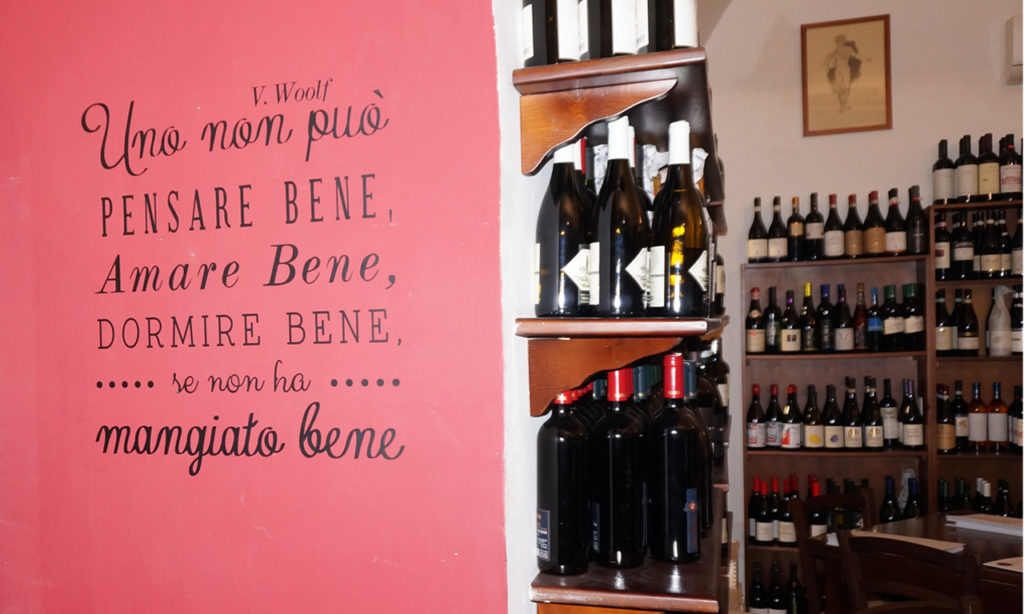 V. Woolf
Uno non può
PENSARE BENE,
Amare Bene,
DORMIRE BENE,
••••• se non ha •••••
mangiato bene